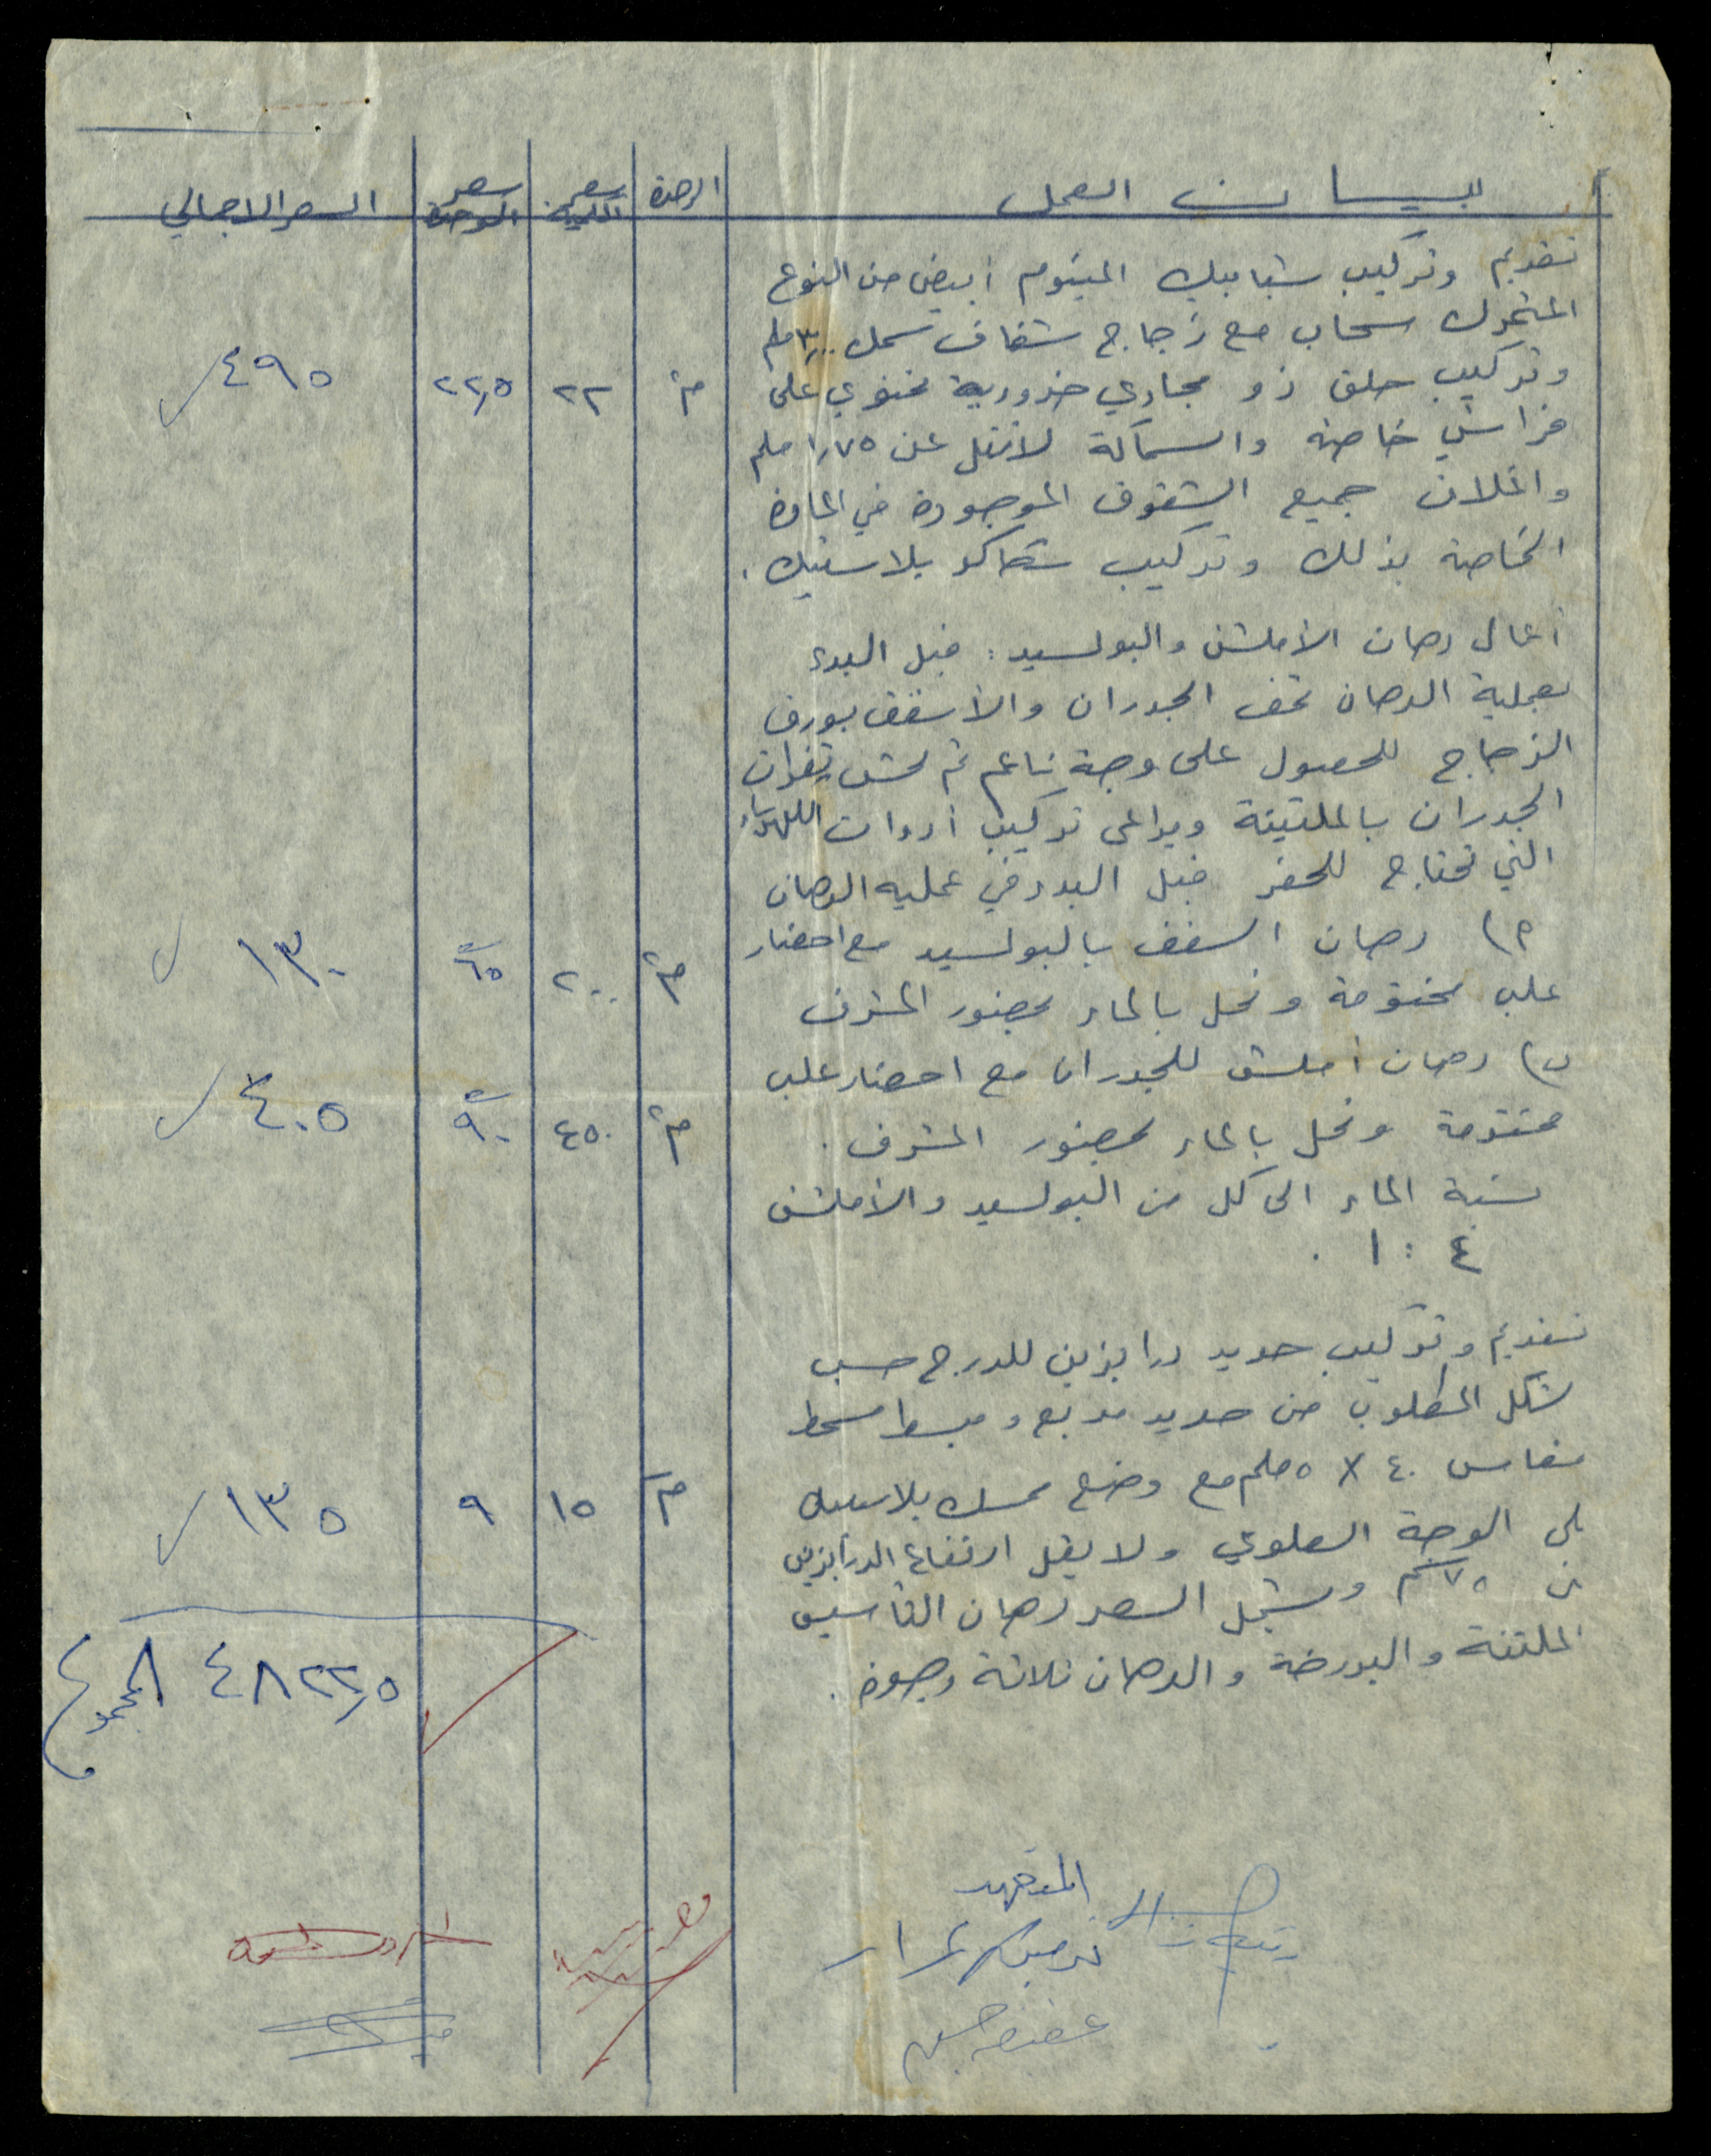 بيان العمل | الوحدة | سعر الكمية | سعر الوحدة | السعر الاجمالي
تقديم وتركيب شبابيك المينوم أبيض من النوع
المتحرك سحاب مع زجاج شفاف سمك ٣ ملم
وتركيب حلق ذو مجاري ضرورية تحتوي على | م٢ | ٢٢ | ٢٢,٥ | ٤٩٥
فراشي خاصة والسماكة لا تقل عن ١,٧٥ ملم
واغلاق جميع الشقوق الموجودة في المادة
الخاصة بذلك وتركيب بلاستيك .
أعمال دهان الأملشن والبولسيد : قبل البدء
بعملية الدهان تحف الجدران والأسقف بورق
الزجاج للحصول على وجه ناعم ثم
الجدران بالملتينة ويراعى تركيب أدوات الكهرباء
التي تحتاج للحفر قبل البدء في عملية الدهان
أ) دهان السقف بالبولسيد مع احضار | م٢ | ٢٠٠ | ٦٥ | ١٣٠
علب مختومة وتحل بالماء بحضور المشرف
ب) دهان أملشن للجدران مع احضار علب
مختومة وتحل بالماء بحضور المشرف . | م٢ | ٤٥٠ | ٩٠ | ٤٠٥
نسبة الماء الى كل من البولسيد والأملشن
٤ : ١ .
تقديم وتركيب حديد درابزين للدرج حسب
شكل المطلوب من حديد مربع و
مقاس ٤٠ × ٥ ملم مع وضع بلاستيك | م | ١٥ | ٩ | ١٣٥
على الوجه العلوي ولا يقل ارتفاع الدرابزين
عن ٧٥ سم ويشمل السعر دهان التأسيس
الملتنة والبورضة والدهان ثلاثة وجوه .
٤٨٢٢,٥ المجموع
المتعهد